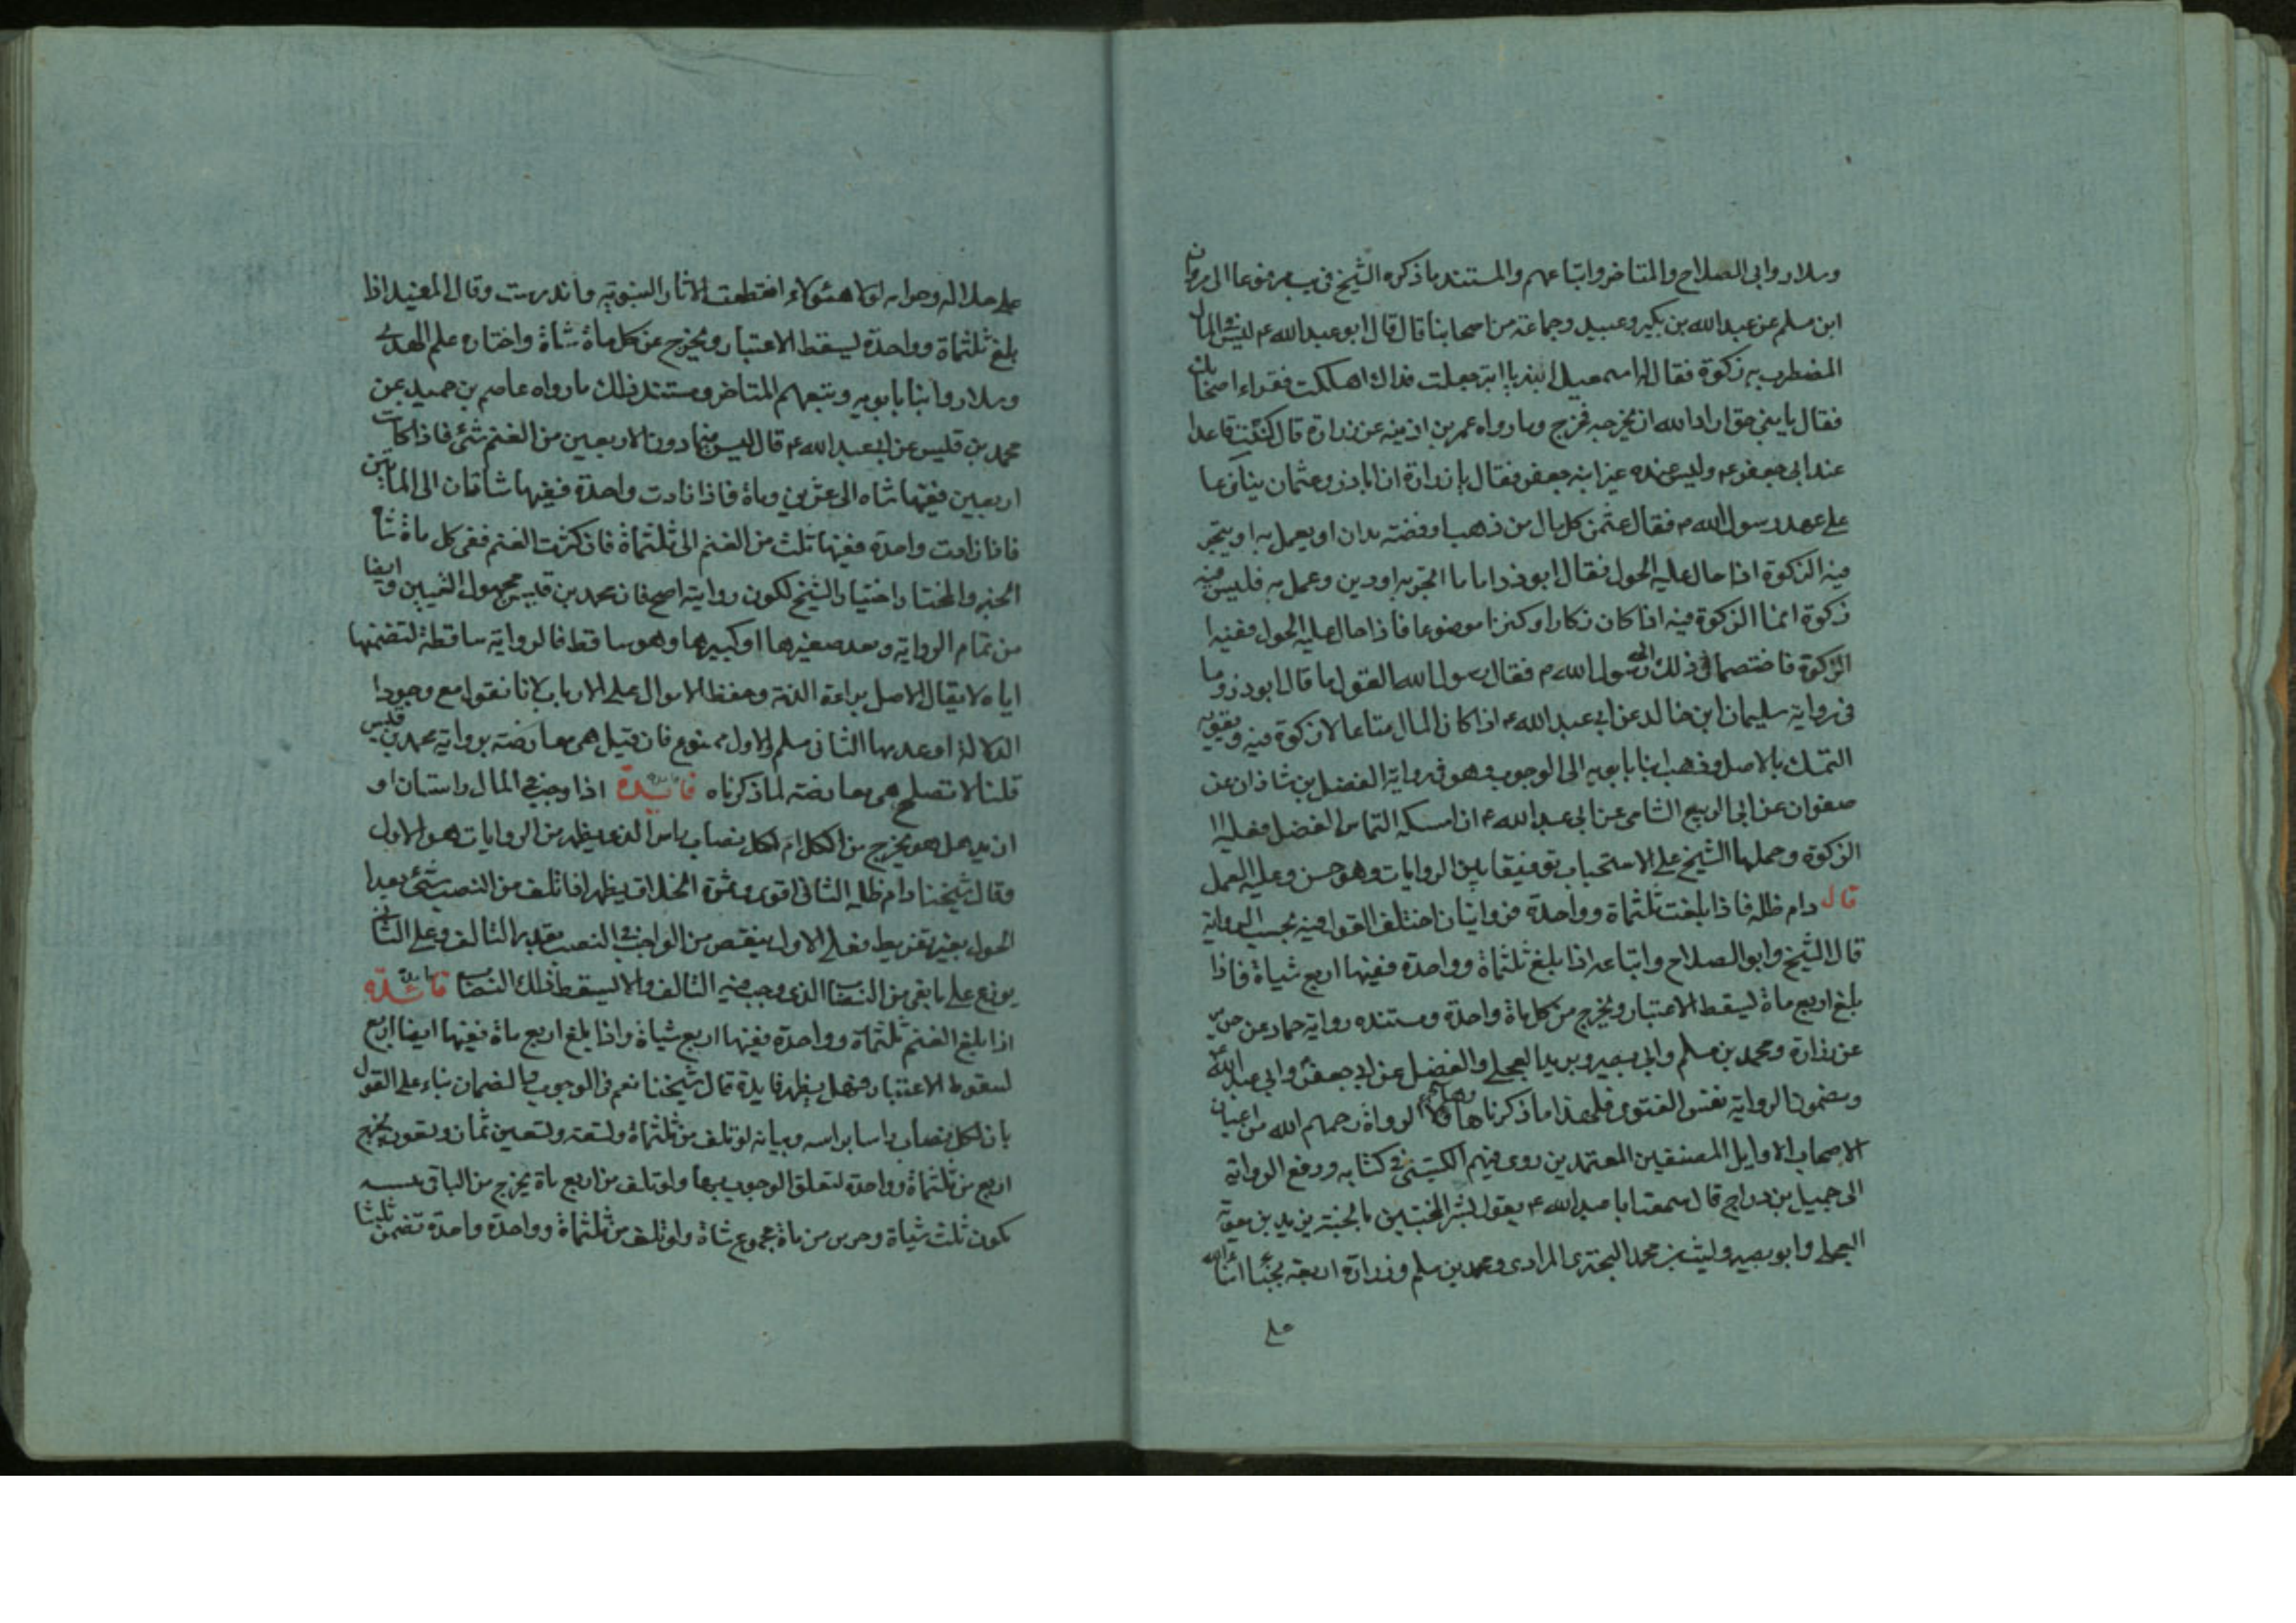 وسلار وابي الصلاح والمتاخر واتباعهم والمستند ما ذكره الشيخ في يب مرفوعا الى مروان
ابن مسلم عن عبد الله بن بكير وعبيد وجماعة من اصحابنا قال قال ابو عبد الله ع ليس في المال
المضطرب به زكوة فقال له اسمعيل ابنه يا ابه جعلت فداك اهلكت فقراء اصحابك
فقال يا بني حق اراد الله ان يخرجه فخرج وما رواه عمر بن اذينه عن زرارة قال كنت قاعدا
عند ابي جعفر ع وليس عنده غير ابنه جعفر فقال يا زرارة ان اباذر وعثمان تنازعا
على عهد رسول الله ص فقال عثمن كل مال من ذهب او فضة يدار او يعمل به او يتجر
فيه الزكوة اذا حال عليه الحول فقال ابو ذر اما ما اتجر به او دين وعمل به فليس فيه
زكوة انما الزكوة فيه اذا كان ركازا او كنزا موضوعا فاذا حال عليه الحول ففيه ا
الزكوة فاختصما في ذلك الى رسول الله ص فقال رسول الله القول ما قال ابو ذر وما
في رواية سليمان ابن خالد عن ابي عبد الله ع اذا كان المال متاعا لا زكوة فيه ويقويه
التمسك بالاصل وذهب ابنا بابويه الى الوجوب وهو في رواية الفضل بن شاذان عن
صفوان عن ابي الربيع الشامي عن ابي عبد الله ع ان امسكه التماس الفضل فعليه ا
الزكوة وحملها الشيخ على الاستحباب توفيقا بين الروايات وهو حسن وعليه العمل
قال دام ظله فاذا بلغت ثلثماة وواحدة فروايتان اختلف القول فيه بحسب الرواية
قال الشيخ وابو الصلاح واتباعه اذا بلغ ثلثماة وواحدة ففيها اربع شياة فاذا
بلغ اربع ماة ليسقط الاعتبار ويخرج من كل ماة واحدة ومستنده رواية حماد عن حريز
عن زرارة ومحمد بن مسلم وابي بصير وبريد العجلي والفضيل عن ابي جعفر وابي عبد الله
ومضمون الرواية نفس الفتوى فلهذا ما ذكرناها الرواة رحمهم الله من اعيان
الاصحاب الاوايل المصنفين المعتمدين روى فيهم الكشي في كتابه ورفع الرواية
الى جميل بن دراج قال سمعت ابا عبد الله ع يقول بشر المخبتين بالجنة بريد بن معوية
العجلي وابو بصير وليث بن محمد البحتري المرادي ومحمد بن مسلم وزرارة اربعة نجباء امناء الله
على
على حلاله وحرامه لولا هئولاء انقطعت الاثار النبوتيه واندرست وقال المفيد اذا
بلغ ثلثماة وواحدة ليسقط الاعتبار ويخرج عن كل ماة شاة واختاره علم الهدى
وسلار وابنا بابويه وتبعهم المتاخر ومستند ذلك ما رواه عاصم بن حميد عن
محمد بن قيس عن ابي عبد الله ع قال ليس فيما دون الاربعين من الغنم شئ فاذا كانت
اربعين ففيها شاه الى عشرين وماة فاذا زادت واحدة ففيها شاتان الى المأتين
فاذا زادت واحدة ففيها ثلث من الغنم الى ثلثماة فاذ كثرت الغنم ففي كل ماة شاة
الخبر والمختار اختيار الشيخ لكون روايته اصح فان محمد بن قيس مجهول وايضا
من تمام الرواية ويعد صغيرها او كبيرها وهو ساقط فالرواية ساقطة لتضمنها
اياه لا يقال الاصل براءة الذمة وحفظ الاموال على الارباب لانا نقول مع وجود ا
الدلالة او عدمها الثاني مسلم والاول ممنوع فان قيل هي معارضة برواية محمد بن قيس
قلنا لا تصلح هي معارضة لما ذكرناه فائدة اذا وجب في المال راستان او
ازيد هل هو يخرج من الكل ام لكل نصاب راس الذي يظهر من الروايات هو الاول
وقال شيخنا دام ظله الثاني اقوى وثمرة الخلاف يظهر اذا تلف من النصب شئ بعد ا
الحول بغير تفريط فعلى الاول ينقص من الواجب في النصب بقدر التالف وعلى الثاني
يوزع على ما بقي من النصاب الذي وجب فيه التالف والا ليسقط ذلك النصاب فائدة
اذا بلغ الغنم ثلثماة وواحدة ففيها اربع شياة واذا بلغ اربع ماة ففيها ايضا اربع
لسقوط الاعتبار فهل يظهر فايدة قال شيخنا نعم في الوجوب والضمان بناء على القول
بان لكل نصاب راسا براسه وبيانه لو تلف من ثلثماة وتسعة وتسعين ثمان وتسعون يخرج
اربع من ثلثماة وواحدة لتعلق الوجوب بها ولو تلف من اربع ماة يخرج من الباقي
يكون ثلث شياة من ماة مجموع شاة ولو تلف من ثلثماة وواحدة واحدة تضمن ثلثا